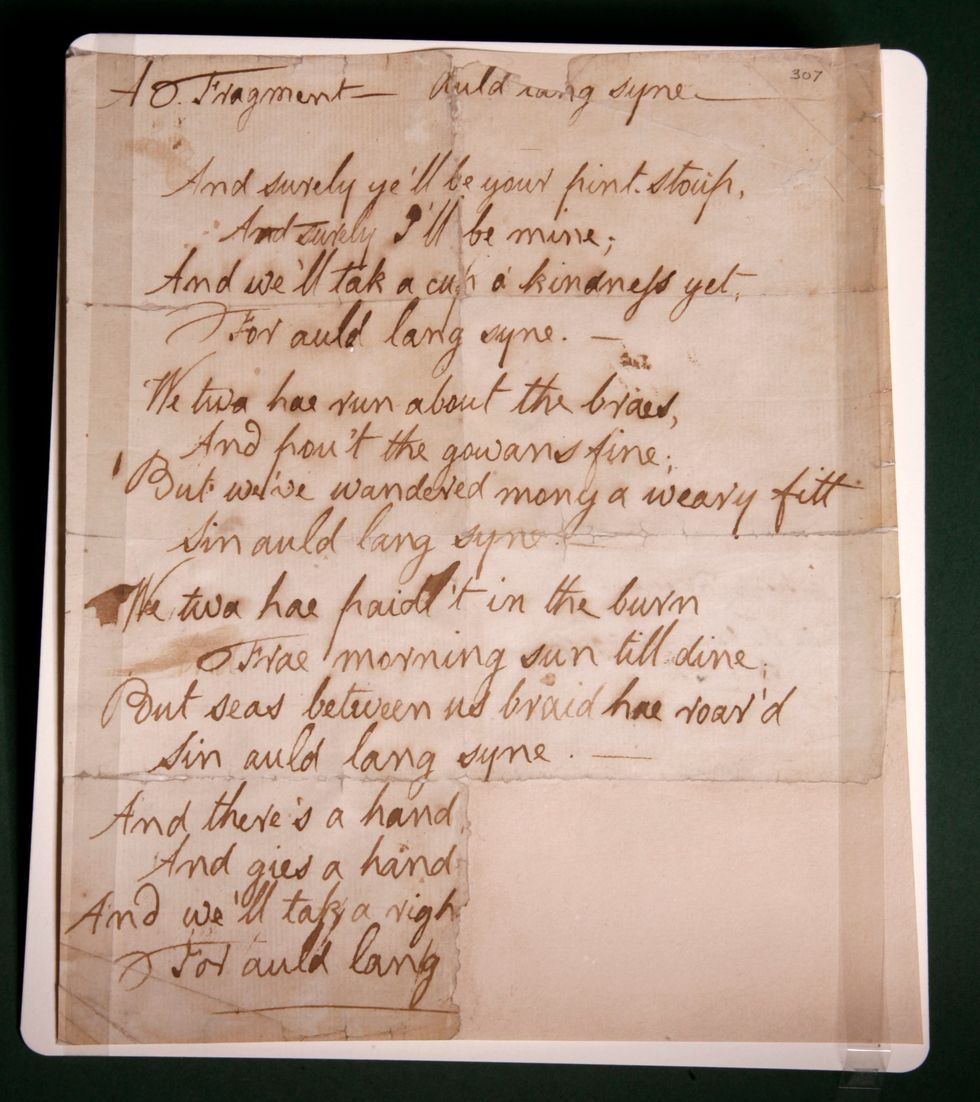 A Fragment — Auld lang syne — 307
And surely ye'll be your pint-stoup,
And surely I'll be mine;
And we'll tak a cup o' kindneſs yet,
For auld lang syne. —
We twa hae run about the braes,
And pou't the gowans fine;
But we've wandered mony a weary fitt
Sin auld lang syne —
We twa hae paidl't in the burn
Frae morning sun till dine;
But seas between us braid hae roar'd
Sin auld lang syne. —
And there's a hand
And gies a hand
And we'll tak a righ
For auld lang